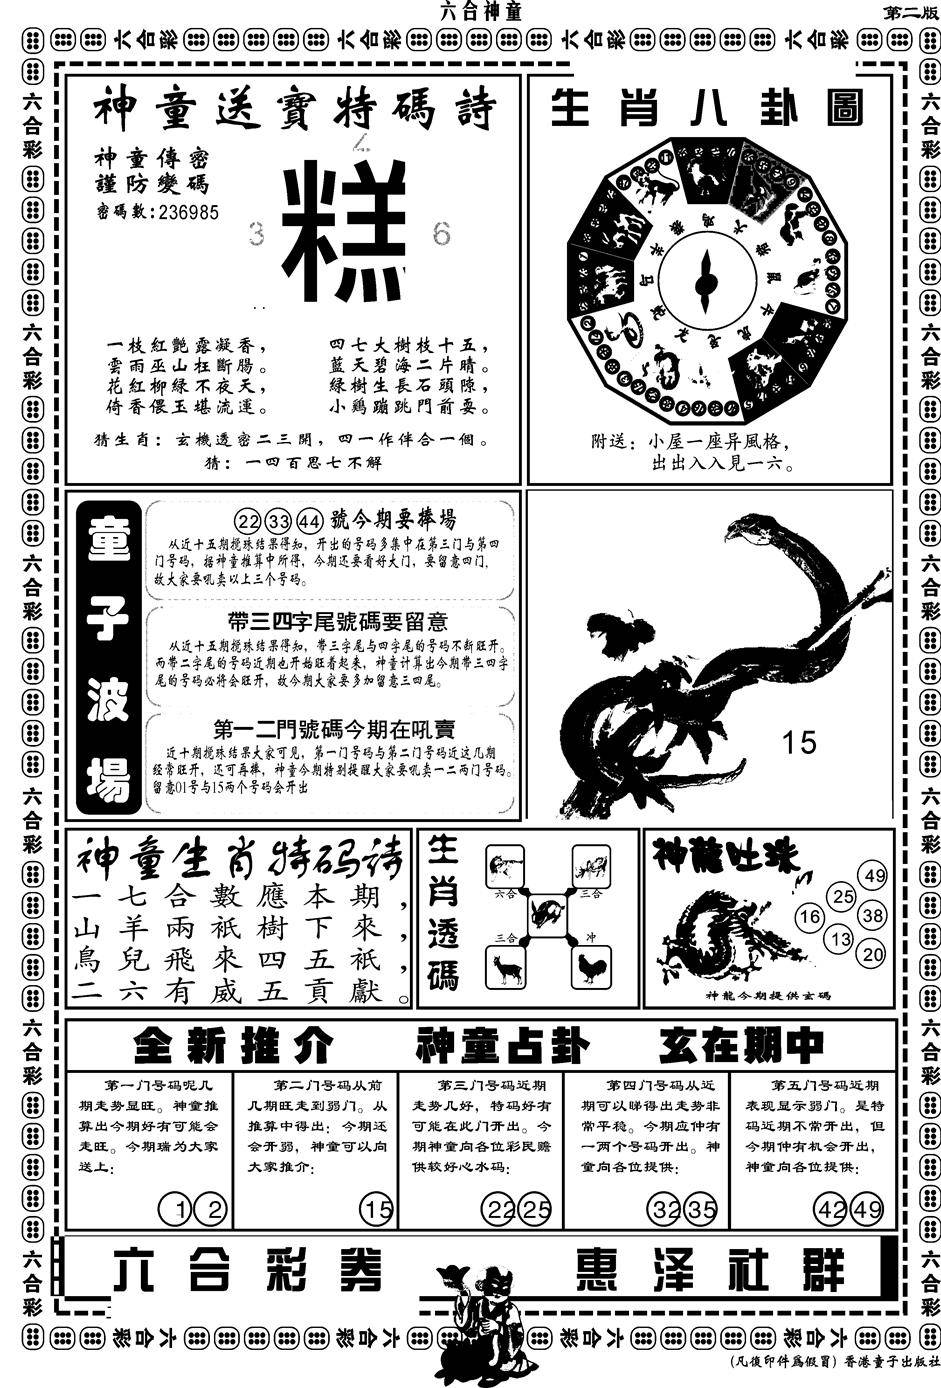 六合神童
第二版
神童送寶特碼詩
神童傳密
謹防變碼
密碼數:236985
糕
3
6
一枝紅艷露凝香，
雲雨巫山枉斷腸。
花紅柳綠不夜天，
倚香偎玉堪流連。
四七大樹枝十五，
藍天碧海二片晴。
綠樹生長石頭隙，
小鷄蹦跳門前耍。
猜生肖：玄機透密二三開，四一作伴合一個。
猜：一四百思七不解
生肖八卦圖
附送：小屋一座异風格，
出出入入見一六。
童子波場
22 33 44 號今期要捧場
从近十五期搅珠结果得知，开出的号码多集中在第三门与第四
门号码，据神童推算中所得，今期还要看好大门，要留意四门，
故大家要吼卖以上三个号码。
帶三四字尾號碼要留意
从近十五期搅珠结果得知，带三字尾与四字尾的号码不断旺开。
而带二字尾的号码近期也开始旺看起来，神童计算出今期带三四字
尾的号码必将会旺开，故今期大家要多加留意三四尾。
第一二門號碼今期在吼賣
近十期搅珠结果大家可见，第一门号码与第二门号码近这几期
经常旺开，还可再捧，神童今期特别提醒大家要吼卖一二两门号码。
留意01号与15两个号码会开出
15
神童生肖特码诗
一七合數應本期，
山羊兩祇樹下來，
鳥兒飛來四五祇，
二六有威五貢獻。
生肖透碼
六合
三合
三合
冲
神龍吐珠
49
25
16
38
13
20
神龍今期提供玄碼
全新推介 神童占卦 玄在期中
第一门号码呢几
期走势显旺。神童推
算出今期好有可能会
走旺。今期瑞为大家
送上：
1 2
第二门号码从前
几期旺走到弱门。从
推算中得出：今期还
会开弱，神童可以向
大家推介：
15
第三门号码近期
走势几好，特码好有
可能在此门开出。今
期神童向各位彩民赐
供较好心水码：
22 25
第四门号码从近
期可以睇得出走势非
常平稳。今期应仲有
一两个号码开出。神
童向各位提供：
32 35
第五门号码近期
表现显示弱门。是特
码近期不常开出，但
今期仲有机会开出，
神童向各位提供：
42 49
六合彩券 惠泽社群
(凡復印件爲假冒) 香港童子出版社